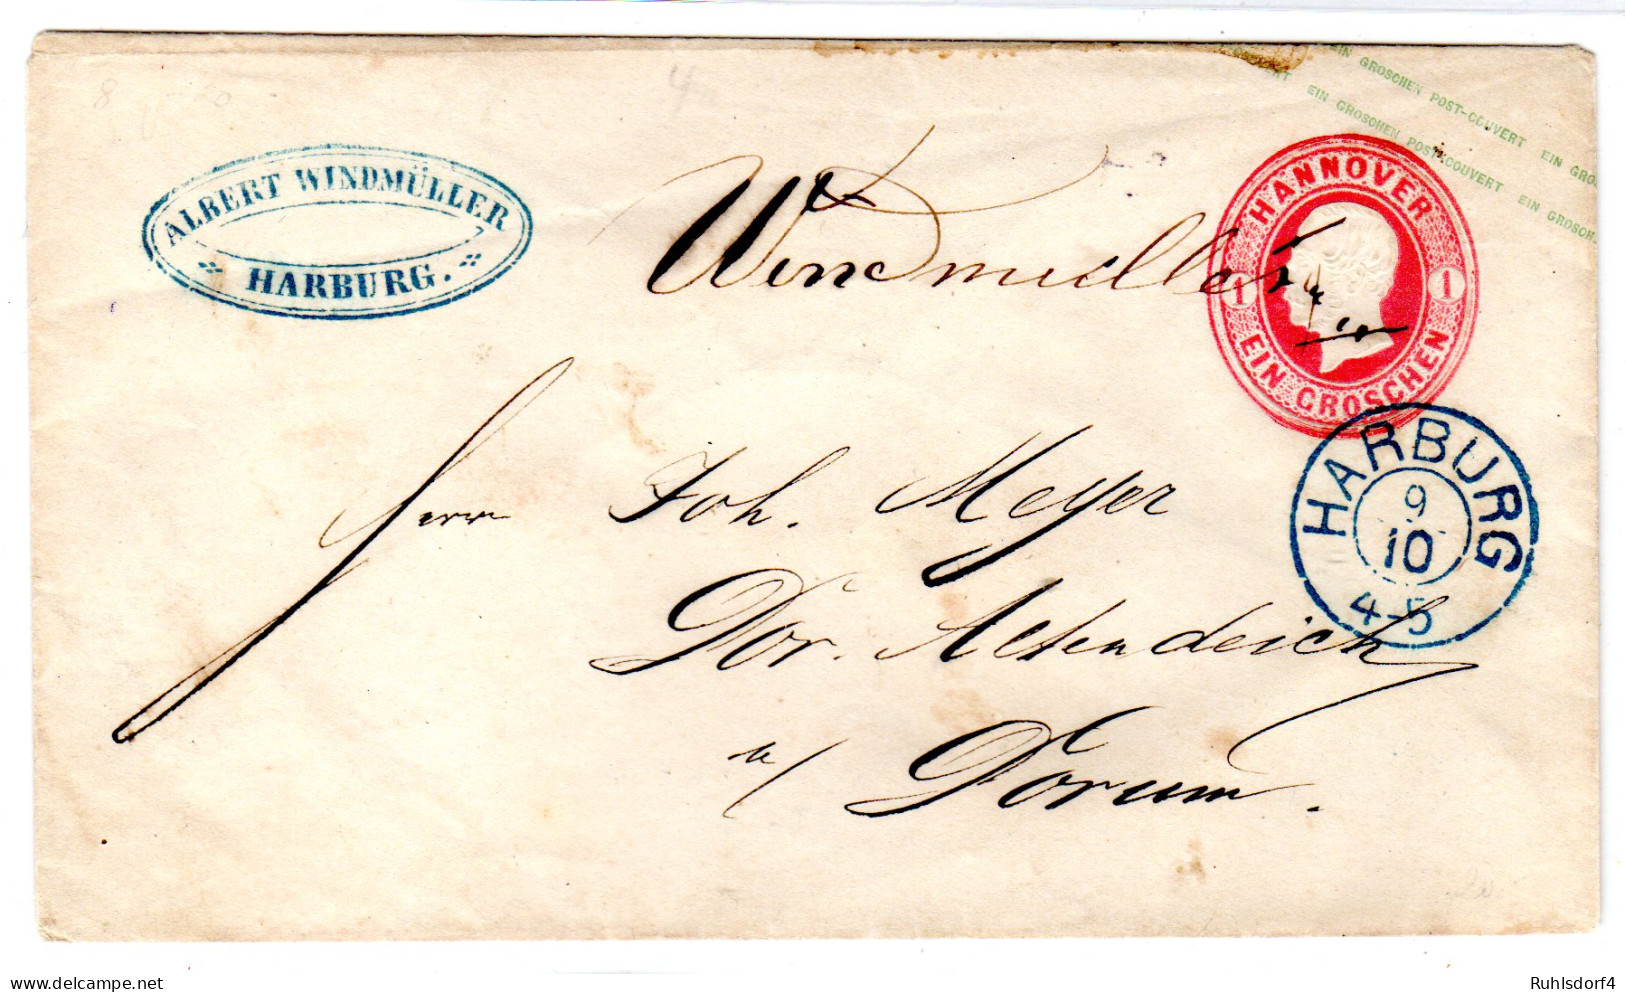 EIN GROSCHEN POST-COUVERT EIN GROS
COUVERT EIN GROSCHEN POST-COUVERT EIN GROSCH
ALBERT WINDMÜLLER
HARBURG.
Windmüller
HANNOVER
1 1
EIN GROSCHEN
HARBURG
9
10
4-5
Herrn Joh. Meyer
Dor. Altendeich
b/ Dorum.
delcampe.net
Ruhlsdorf4